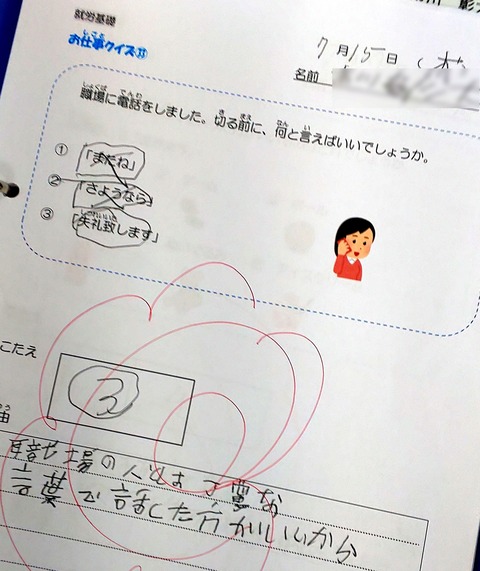 就労基礎
お仕事クイズ㉝
7月15日(木)
名前
職場に電話をしました。切る前に、何と言えばいいでしょうか。
① 「またね」
② 「さようなら」
③ 「失礼致します」
こたえ
③
由
職場の人とは丁寧な
言葉で話した方がいいから